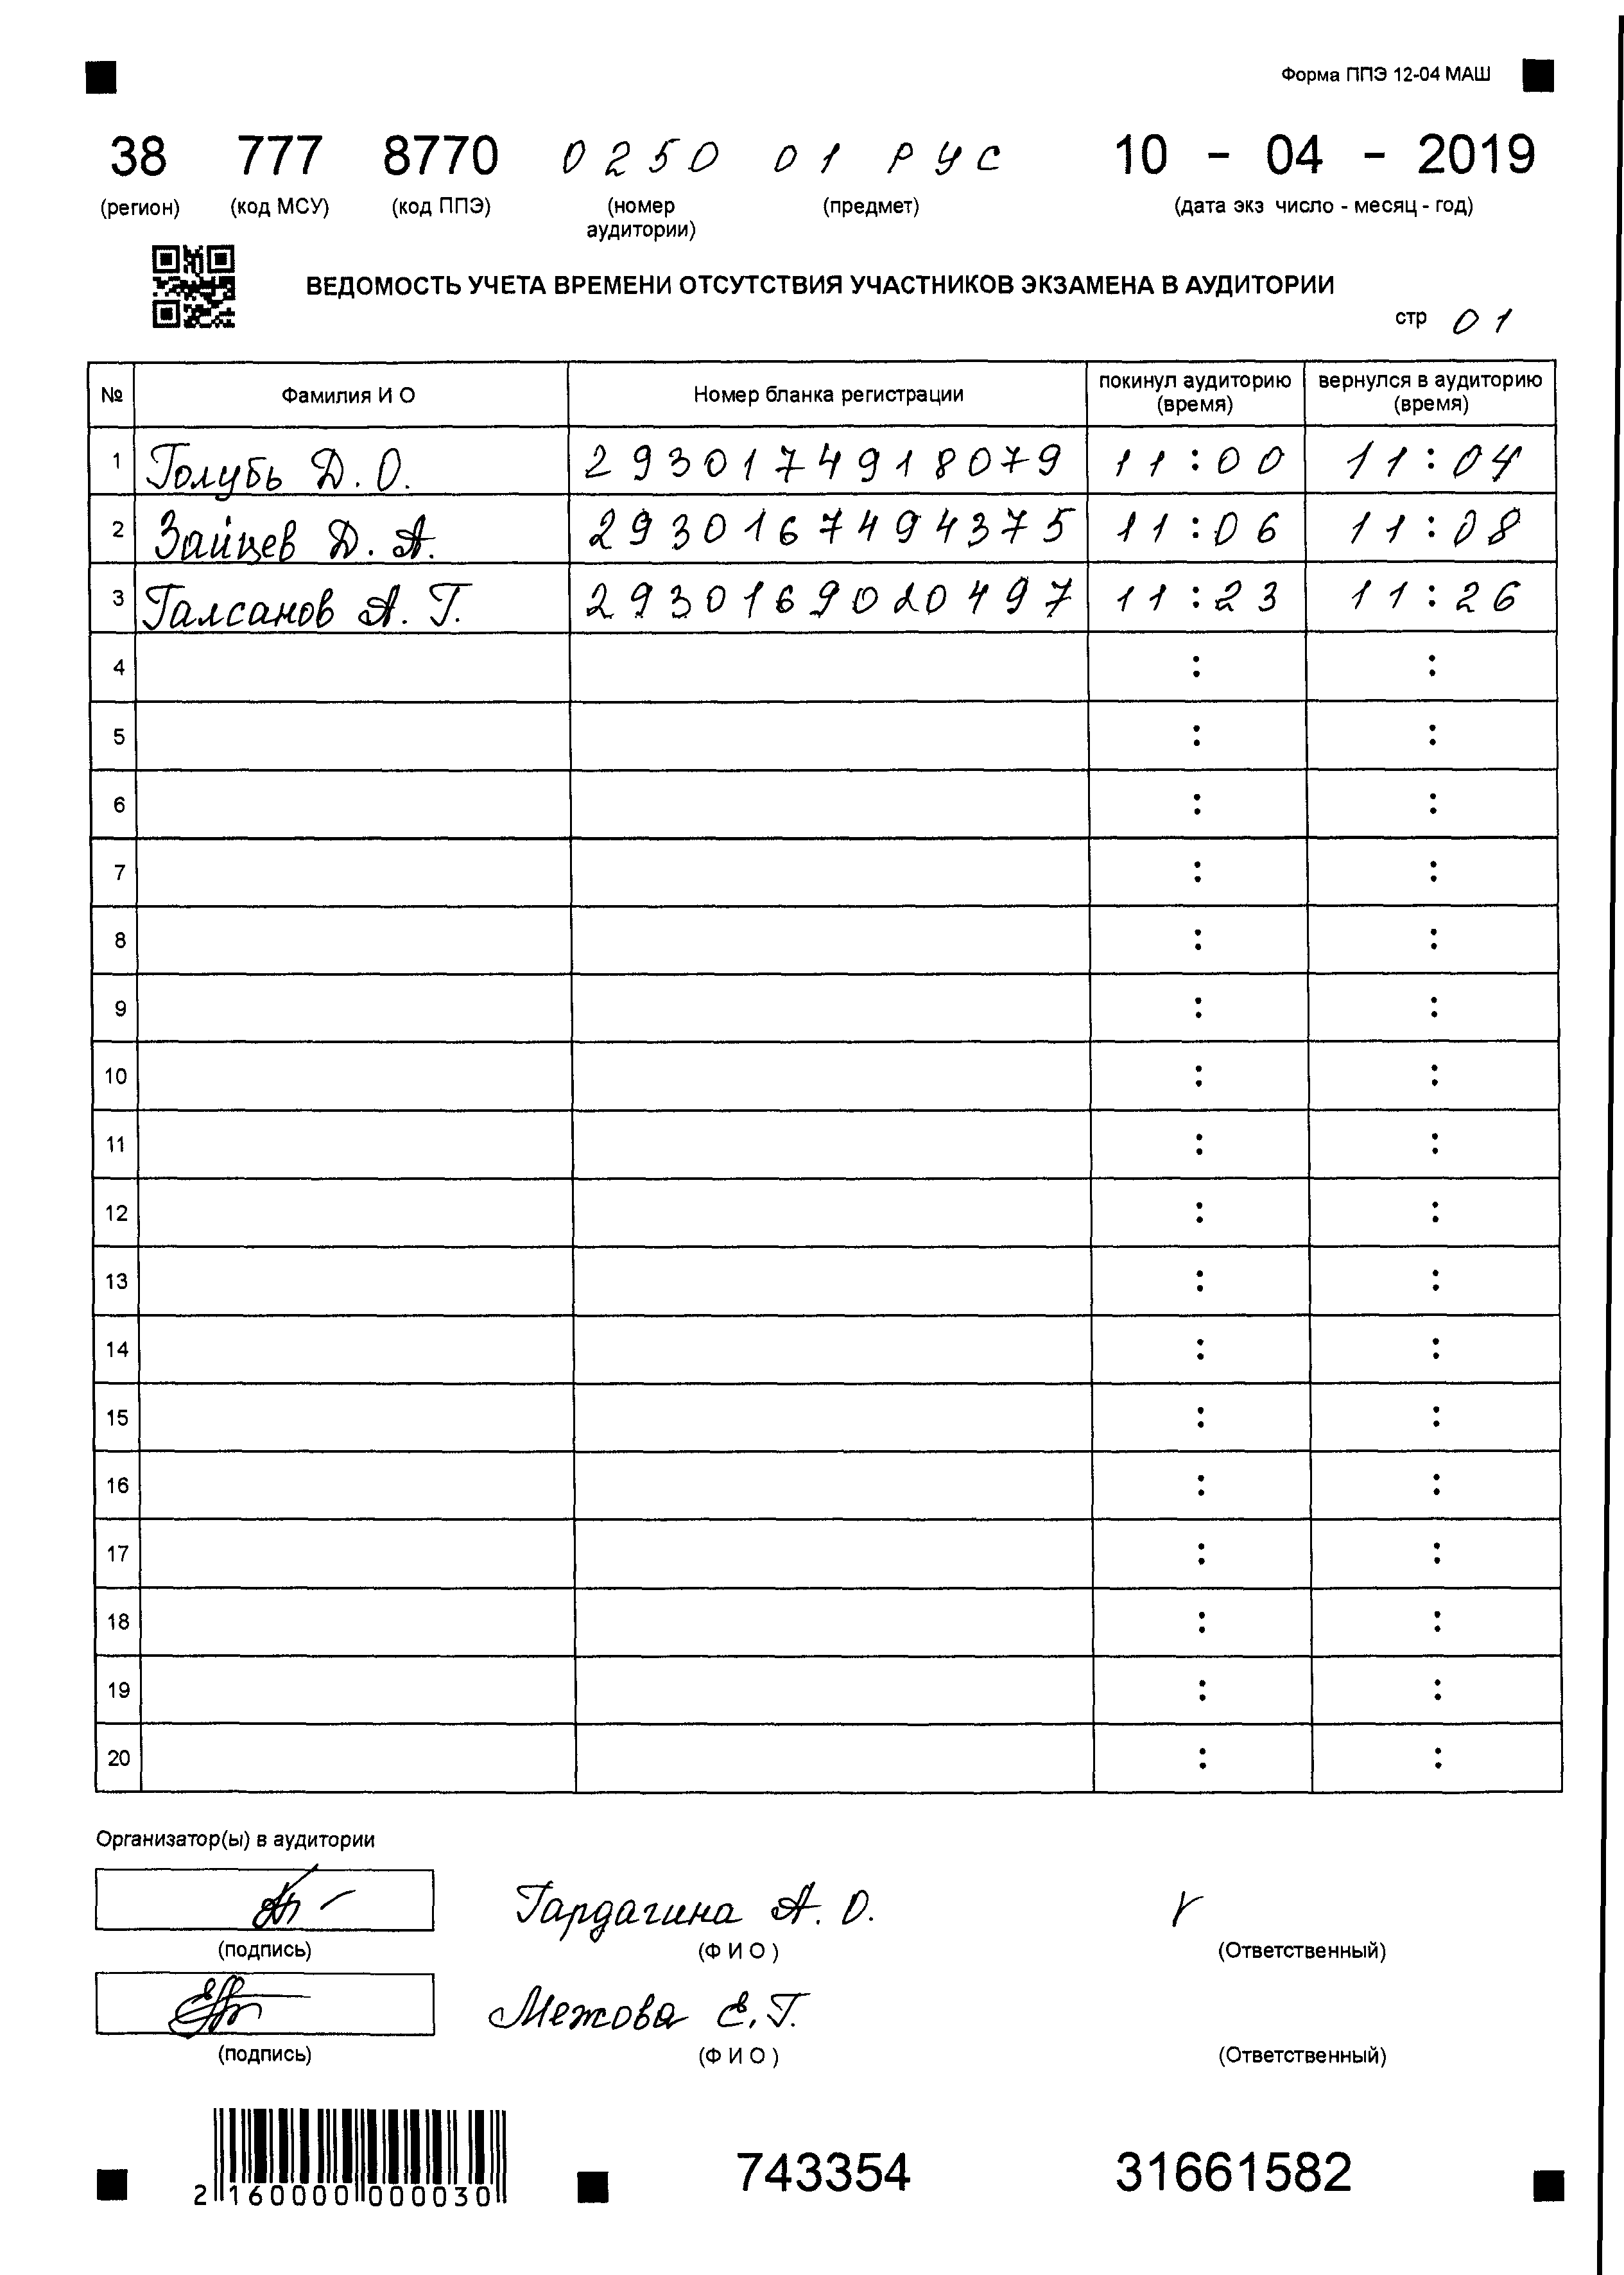 Форма ППЭ 12-04 МАШ
38 777 8770 0250 01 РУС 10 - 04 - 2019
(регион) (код МСУ) (код ППЭ) (номер аудитории) (предмет) (дата экз число - месяц - год)
ВЕДОМОСТЬ УЧЕТА ВРЕМЕНИ ОТСУТСТВИЯ УЧАСТНИКОВ ЭКЗАМЕНА В АУДИТОРИИ
стр 01
№ Фамилия И О Номер бланка регистрации покинул аудиторию (время) вернулся в аудиторию (время)
1 Голубь Д. О. 2930174918079 11:00 11:04
2 Зайцев Д. А. 2930167494375 11:06 11:08
3 Галсанов А. Г. 2930169020497 11:23 11:26
4 : :
5 : :
6 : :
7 : :
8 : :
9 : :
10 : :
11 : :
12 : :
13 : :
14 : :
15 : :
16 : :
17 : :
18 : :
19 : :
20 : :
Организатор(ы) в аудитории
Гардагина А. О.
(подпись) (Ф И О) (Ответственный)
Межова Е. Г.
(подпись) (Ф И О) (Ответственный)
2 160000 000030 743354 31661582